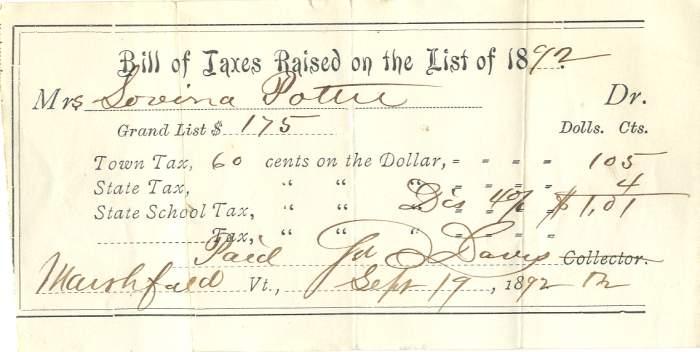 Bill of Taxes Raised on the List of 1892.
Mrs Lovina Potter Dr.
Grand List $ 175 Dolls. Cts.
Town Tax, 60 cents on the Dollar, = = = = 105
State Tax, " " " = = = = 4
State School Tax, " " Dis 4% $1,01
Tax, " " " = = =
Paid Davis Collector.
Marshfield Vt., Sept 19, 1892